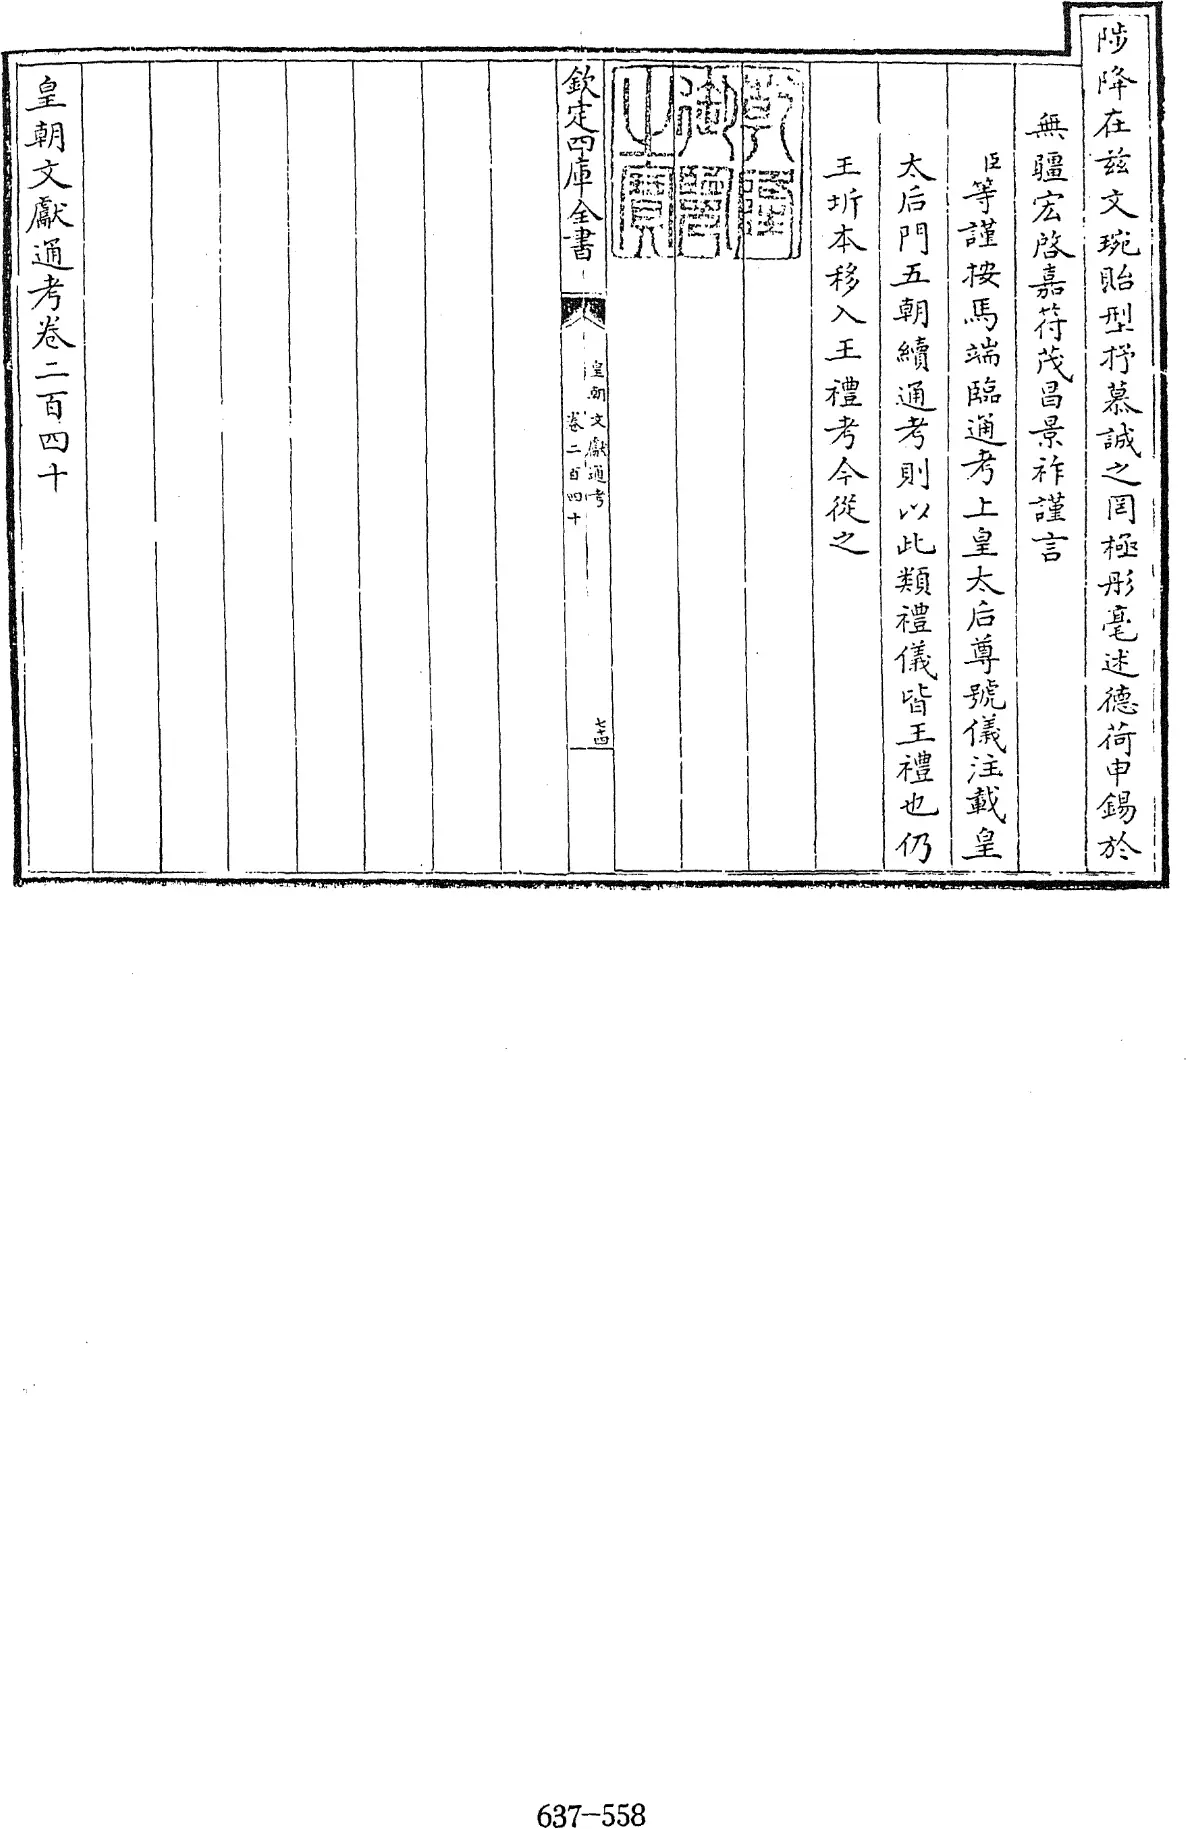 陟降在兹文琬貽型抒慕誠之罔極彤毫述德荷申錫於
無疆宏啓嘉符茂昌景祚謹言
臣等謹按馬端臨通考上皇太后尊號儀注載皇
太后門五朝續通考則以此類禮儀皆王禮也仍
王圻本移入王禮考今從之
乾隆御覽之寶
欽定四庫全書
皇朝文獻通考
卷二百四十
七十四
皇朝文獻通考卷二百四十
637-558